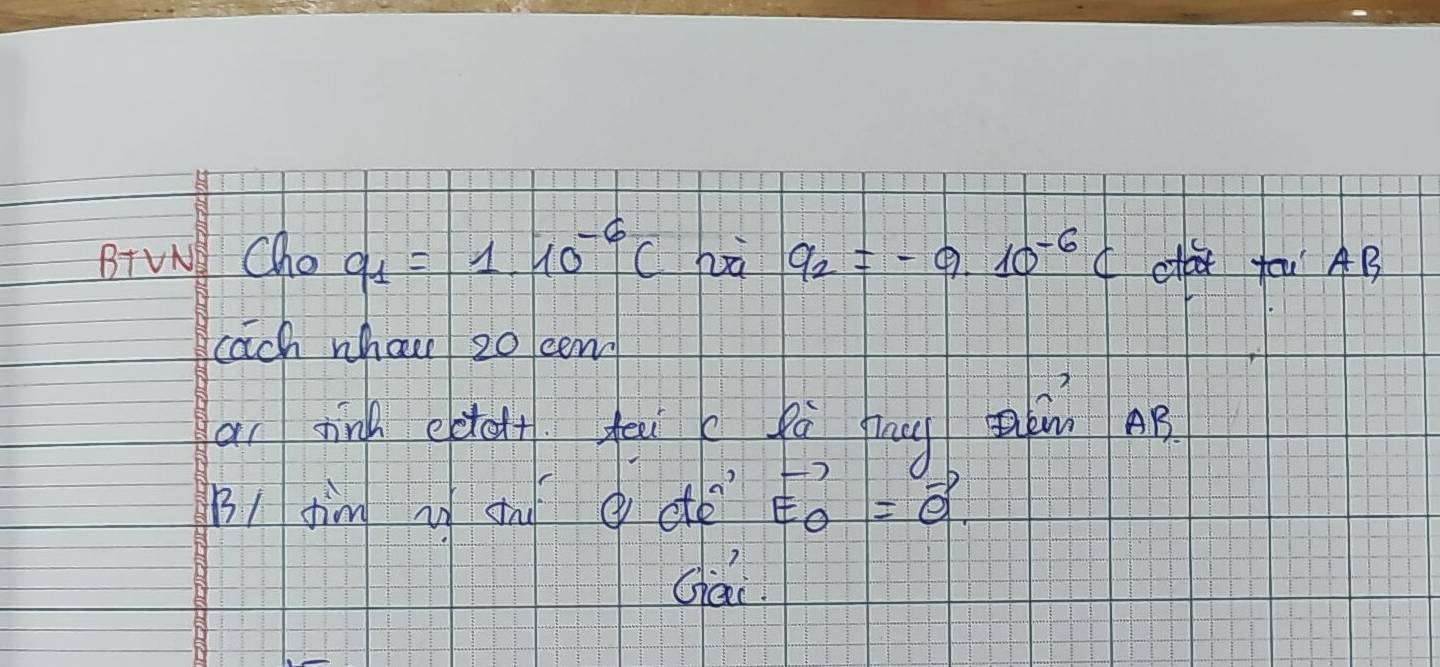 BTVN Cho q₁ = 1.10⁻⁶C và q₂ = -9.10⁻⁶C đặt tại AB
cách nhau 20 cm
a/ tính cđđt. tại C là trung điểm AB
B/ tìm vị trí O để E₀ = 0.
Giải.